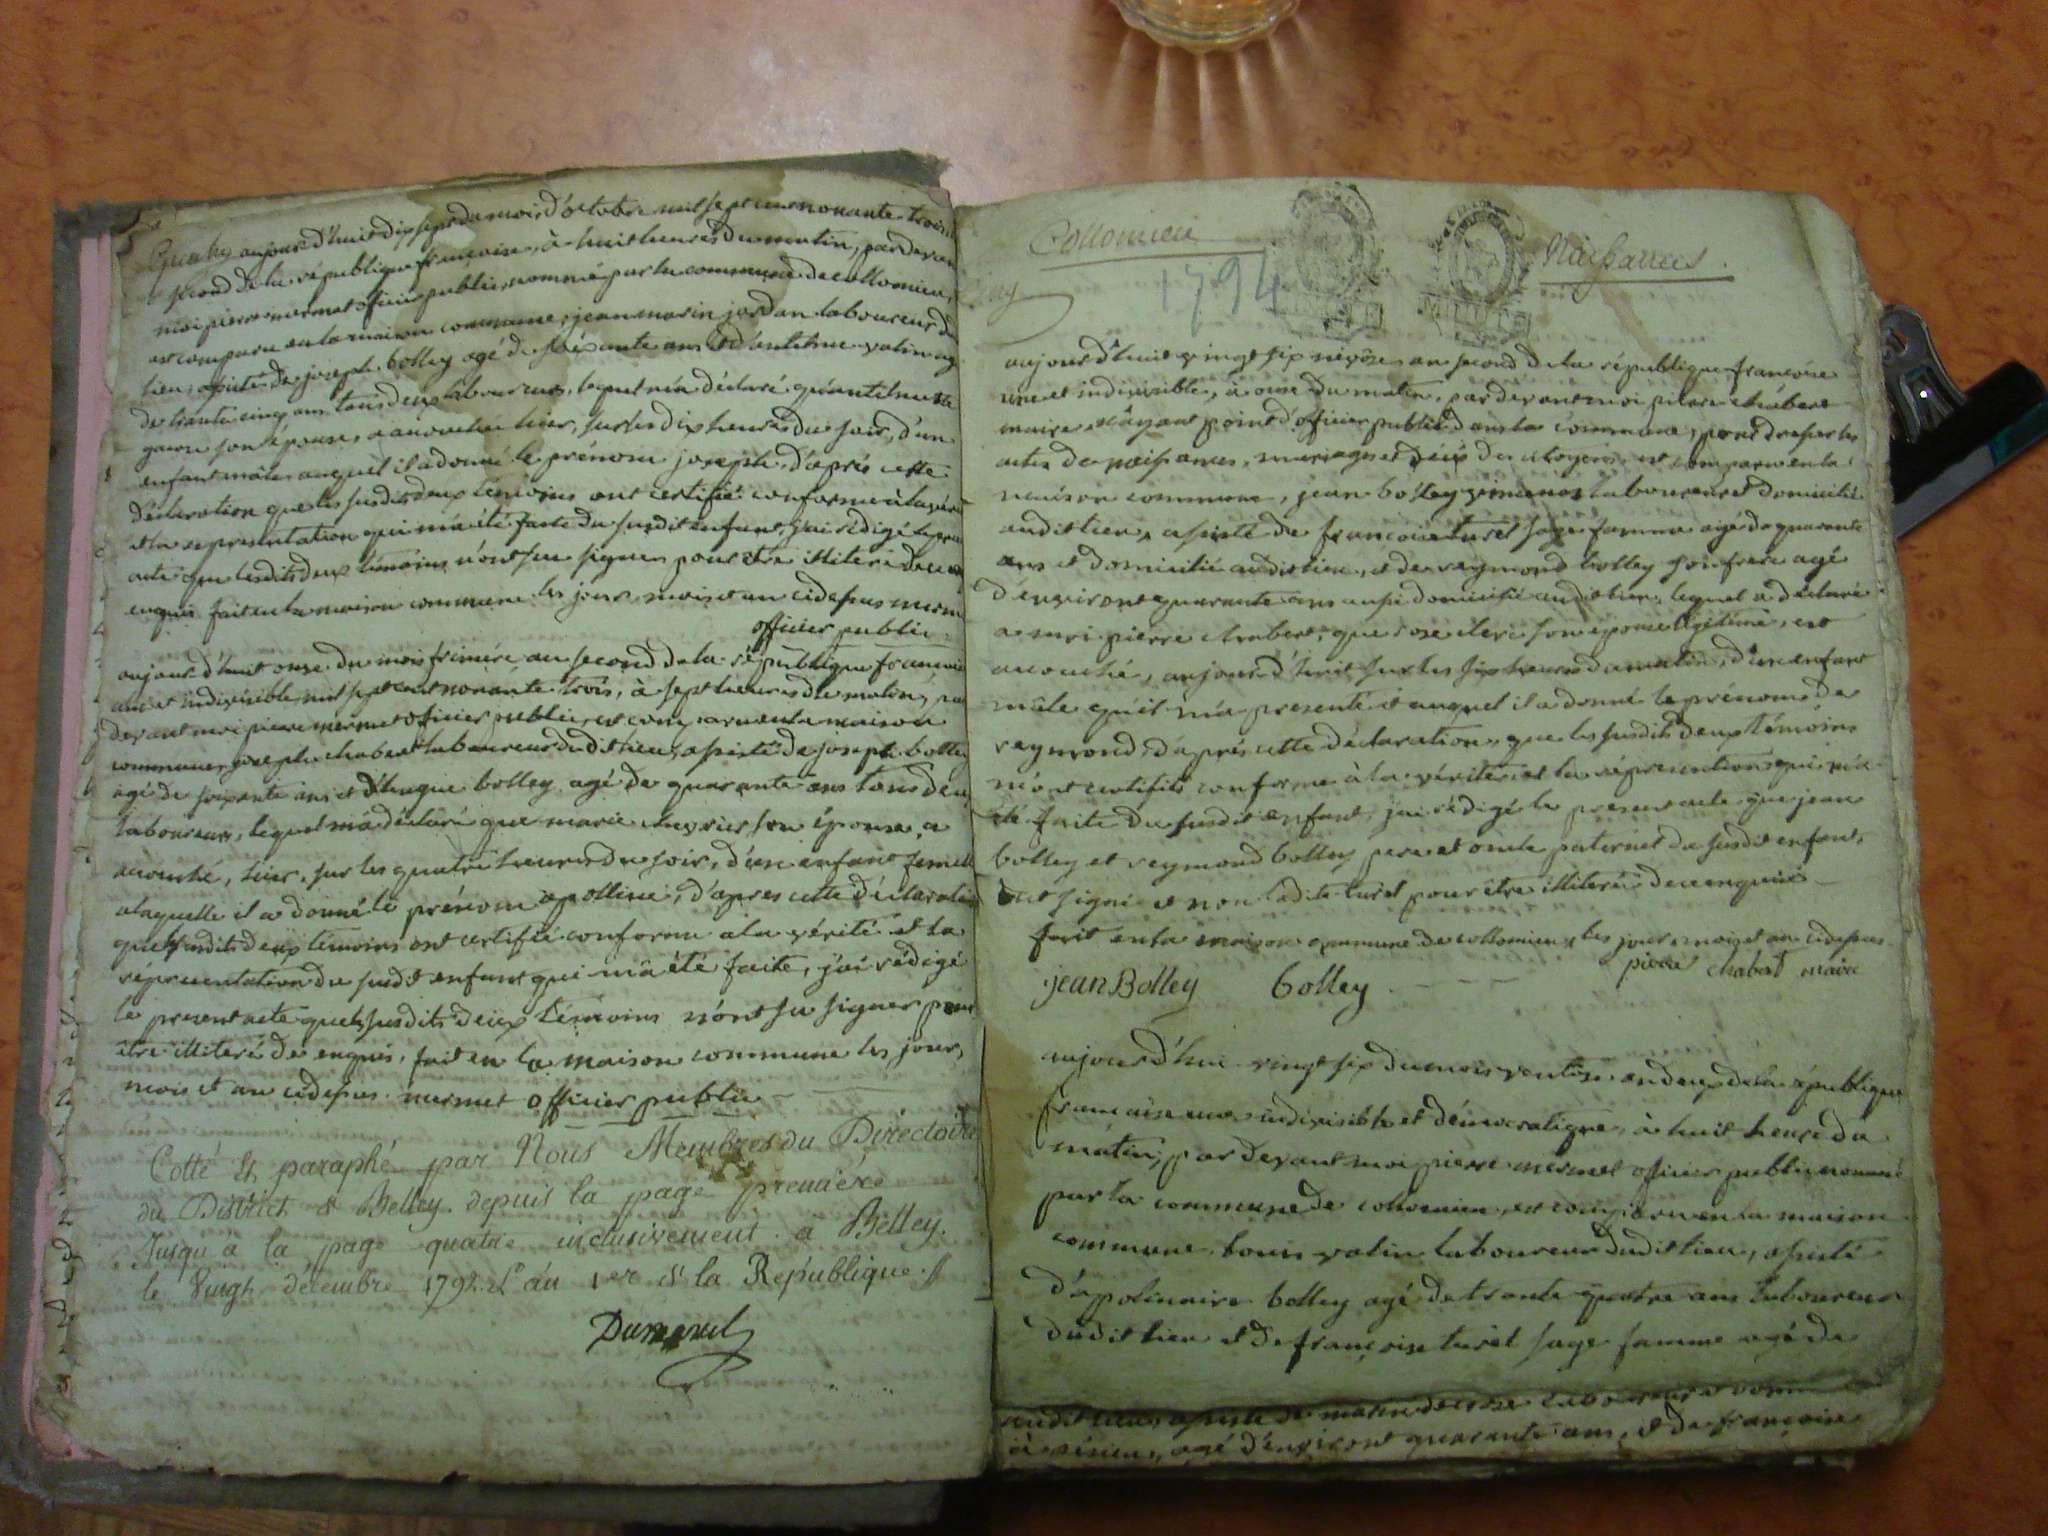 aujourd'huit dix sept du mois d'octobre mil sept cent nonante trois
second de la république francoise, à huit heures du matin, pardevan
moi pierre mermet officier public, nommé par la commune de collomieu,
est comparu en la maison commune, jean marin jordan laboureur du
lieu, assisté de joseph bolley agé de soixante ans et d'antelme valin ag
de trante cinq ans tous deux laboureurs, lequel m'a déclaré qu'antelmette
son épouse, a accouchée hier, sur les dix heures du soir, d'un
enfant mâle auquel il a donné le prénom joseph, d'après cette
déclaration que les susdits deux témoins ont certifié conforme à la véri
et la représentation qui m'a été faite du susdit enfant, j'ai rédigé le
acte que lesdits deux témoins n'ont su signer pour être illiteré de ce
enquis fait en la maison commune les jour, mois et an cidessus mermet
officier public
aujourd'huit onze du mois frimère an second de la république francoise
une et indivisible mil sept cent nonante trois, à sept heures du matin, par
devant moi pierre mermet officier public, est comparu en la maison
commune, joseph chabert laboureur dudit lieu, assisté de joseph bolley
agé de soixante ans et d' bolley agé de quarante ans tous deux
laboureurs, lequel m'a déclaré que marie son épouse, a
accouché, hier, sur les quatre heures du soir, d'un enfant femelle
a laquelle il a donné le prénom apolline, d'apres cette déclaration
que susdits deux témoins ont certifié conforme a la vérité et la
réprésentation du susdit enfant qui m'a été faite, j'ai rédigé
le present acte que susdits deux témoins n'ont su signer pour
être illiteré de enquis, fait en la maison commune les jour,
mois et an cidessus. mermet officier public
Cotté Et paraphé par Nous Membres du Directoire
du District de Belley depuis la page premiére
Jusqu'a la page quatre inclusivement. a Belley.
le Vingt décembre 1792. Lº an 1er de la République.
Collomieu
1794
Naissances
aujourd'huit vingt six nivôse an second de la république francoise
une et indivisible, à onze du matin, pardevant moi pierre chabert
maire n'ayant point d'officier public dans la commune, pour dresser les
actes de naissances, mariages et décés des citoyens, est comparu en la
maison commune, jean bolley laboureur et domicilié
audit lieu, assisté de francoise turet sage famme agé de quarante
ans et domicilié audit lieu, et de reymond bolley son frere agé
d'environt quarante ans aussi domicilié audit lieu, lequel a déclaré
a moi pierre chabert, que rose son epouse légitime, est
accouché, aujourd'huit sur les six heures du matin, d'un enfant
mâle qu'il m'a presenté et auquel il a donné le prénom de
reymond, d'après cette déclaration, que les susdits deux témoins
m'ont certifiés conforme à la vérité et la répresention qui m'a
été faite du susdit enfant, j'ai rédigé le present acte que jean
bolley et reymond bolley pere et oncle paternel du susdit enfant,
ont signé et non ladite turet pour être illiteré de ce enquise
fait en la maison commune de collomieu les jour, mois et an cidessus
pierre chabert maire
jean Bolley bolley
aujourd'hui vingt six du mois ventôse an deux de la république
francaise une indivisible et démocratique, à huit heure du
mâtin, pardevant moi pierre mermet officier public nommé
par la commune de collomieu, est comparu en la maison
commune louis valin laboureur dudit lieu, assisté
d'apolinaire bolley agé de trante quatre ans laboureur
dudit lieu et de françoise turet sage famme agé de
audit lieu, assisté de laboureur
agé d'environt quarante ans, et de francoise